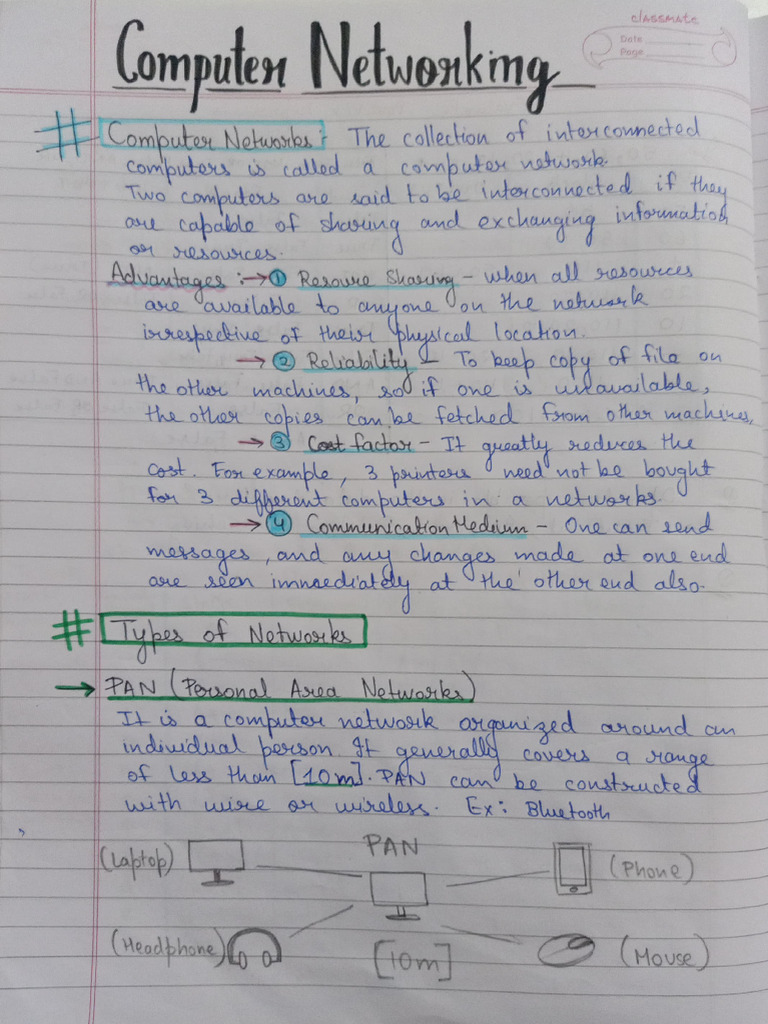 classmate
Date
Page
Computer Networking
# Computer Networks:- The collection of interconnected
computers is called a computer network.
Two computers are said to be interconnected if they
are capable of sharing and exchanging information
or resources.
Advantages :→ ① Resoure Sharing - when all resources
are available to anyone on the network
irrespective of their physical location.
→ ② Reliability - To keep copy of file on
the other machines, so if one is unavailable,
the other copies can be fetched from other machines,
→ ③ Cost factor - It greatly reduces the
cost. For example, 3 printers need not be bought
for 3 different computers in a networks.
→ ④ Communication Medium - One can send
messages, and any changes made at one end
are seen immediately at the other end also.
# Types of Networks
→ PAN (Personal Area Networks)
It is a computer network organized around an
individual person. It generally covers a range
of less than [10m]. PAN can be constructed
with wire or wireless. Ex: Bluetooth
PAN
(Laptop) (Phone)
(Headphone) [10m] (Mouse)